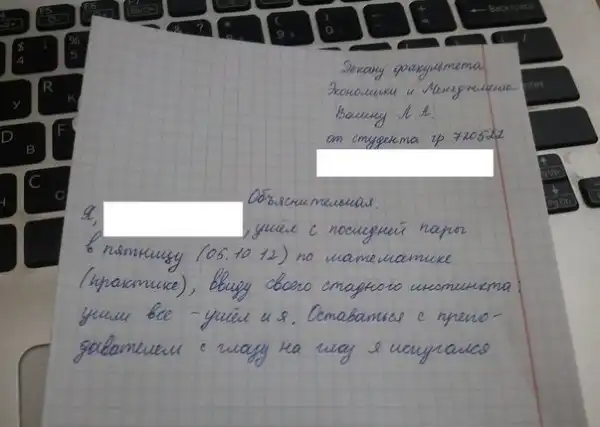 Декану факультета
Экономики и Менеджмента
Вашину А. А.
от студента гр 720522
Объяснительная.
Я, , ушёл с последней пары
в пятницу (05.10 12) по математике
(практике), ввиду своего стадного инстинкта:
ушли все - ушёл и я. Оставаться с препо-
давателем с глазу на глаз я испугался
Backspace